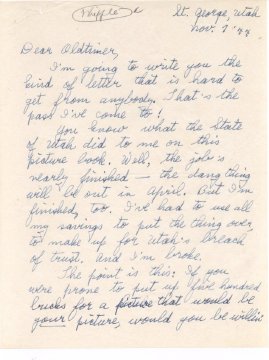 Whipple
St. George, Utah
Nov. 7 '44
Dear Oldtimer,
I'm going to write you the
kind of letter that is hard to
get from anybody. That's the
pass I've come to!
You know what the State
of Utah did to me on this
picture book. Well, the job's
nearly finished — the dang thing
will be out in April. But I'm
finished, too. I've had to use all
my savings to put the thing over,
to make up for Utah's breach
of trust. And I'm broke.
The point is this: If you
were prone to put up five hundred
bucks for a picture that would be
your picture, would you be willin'